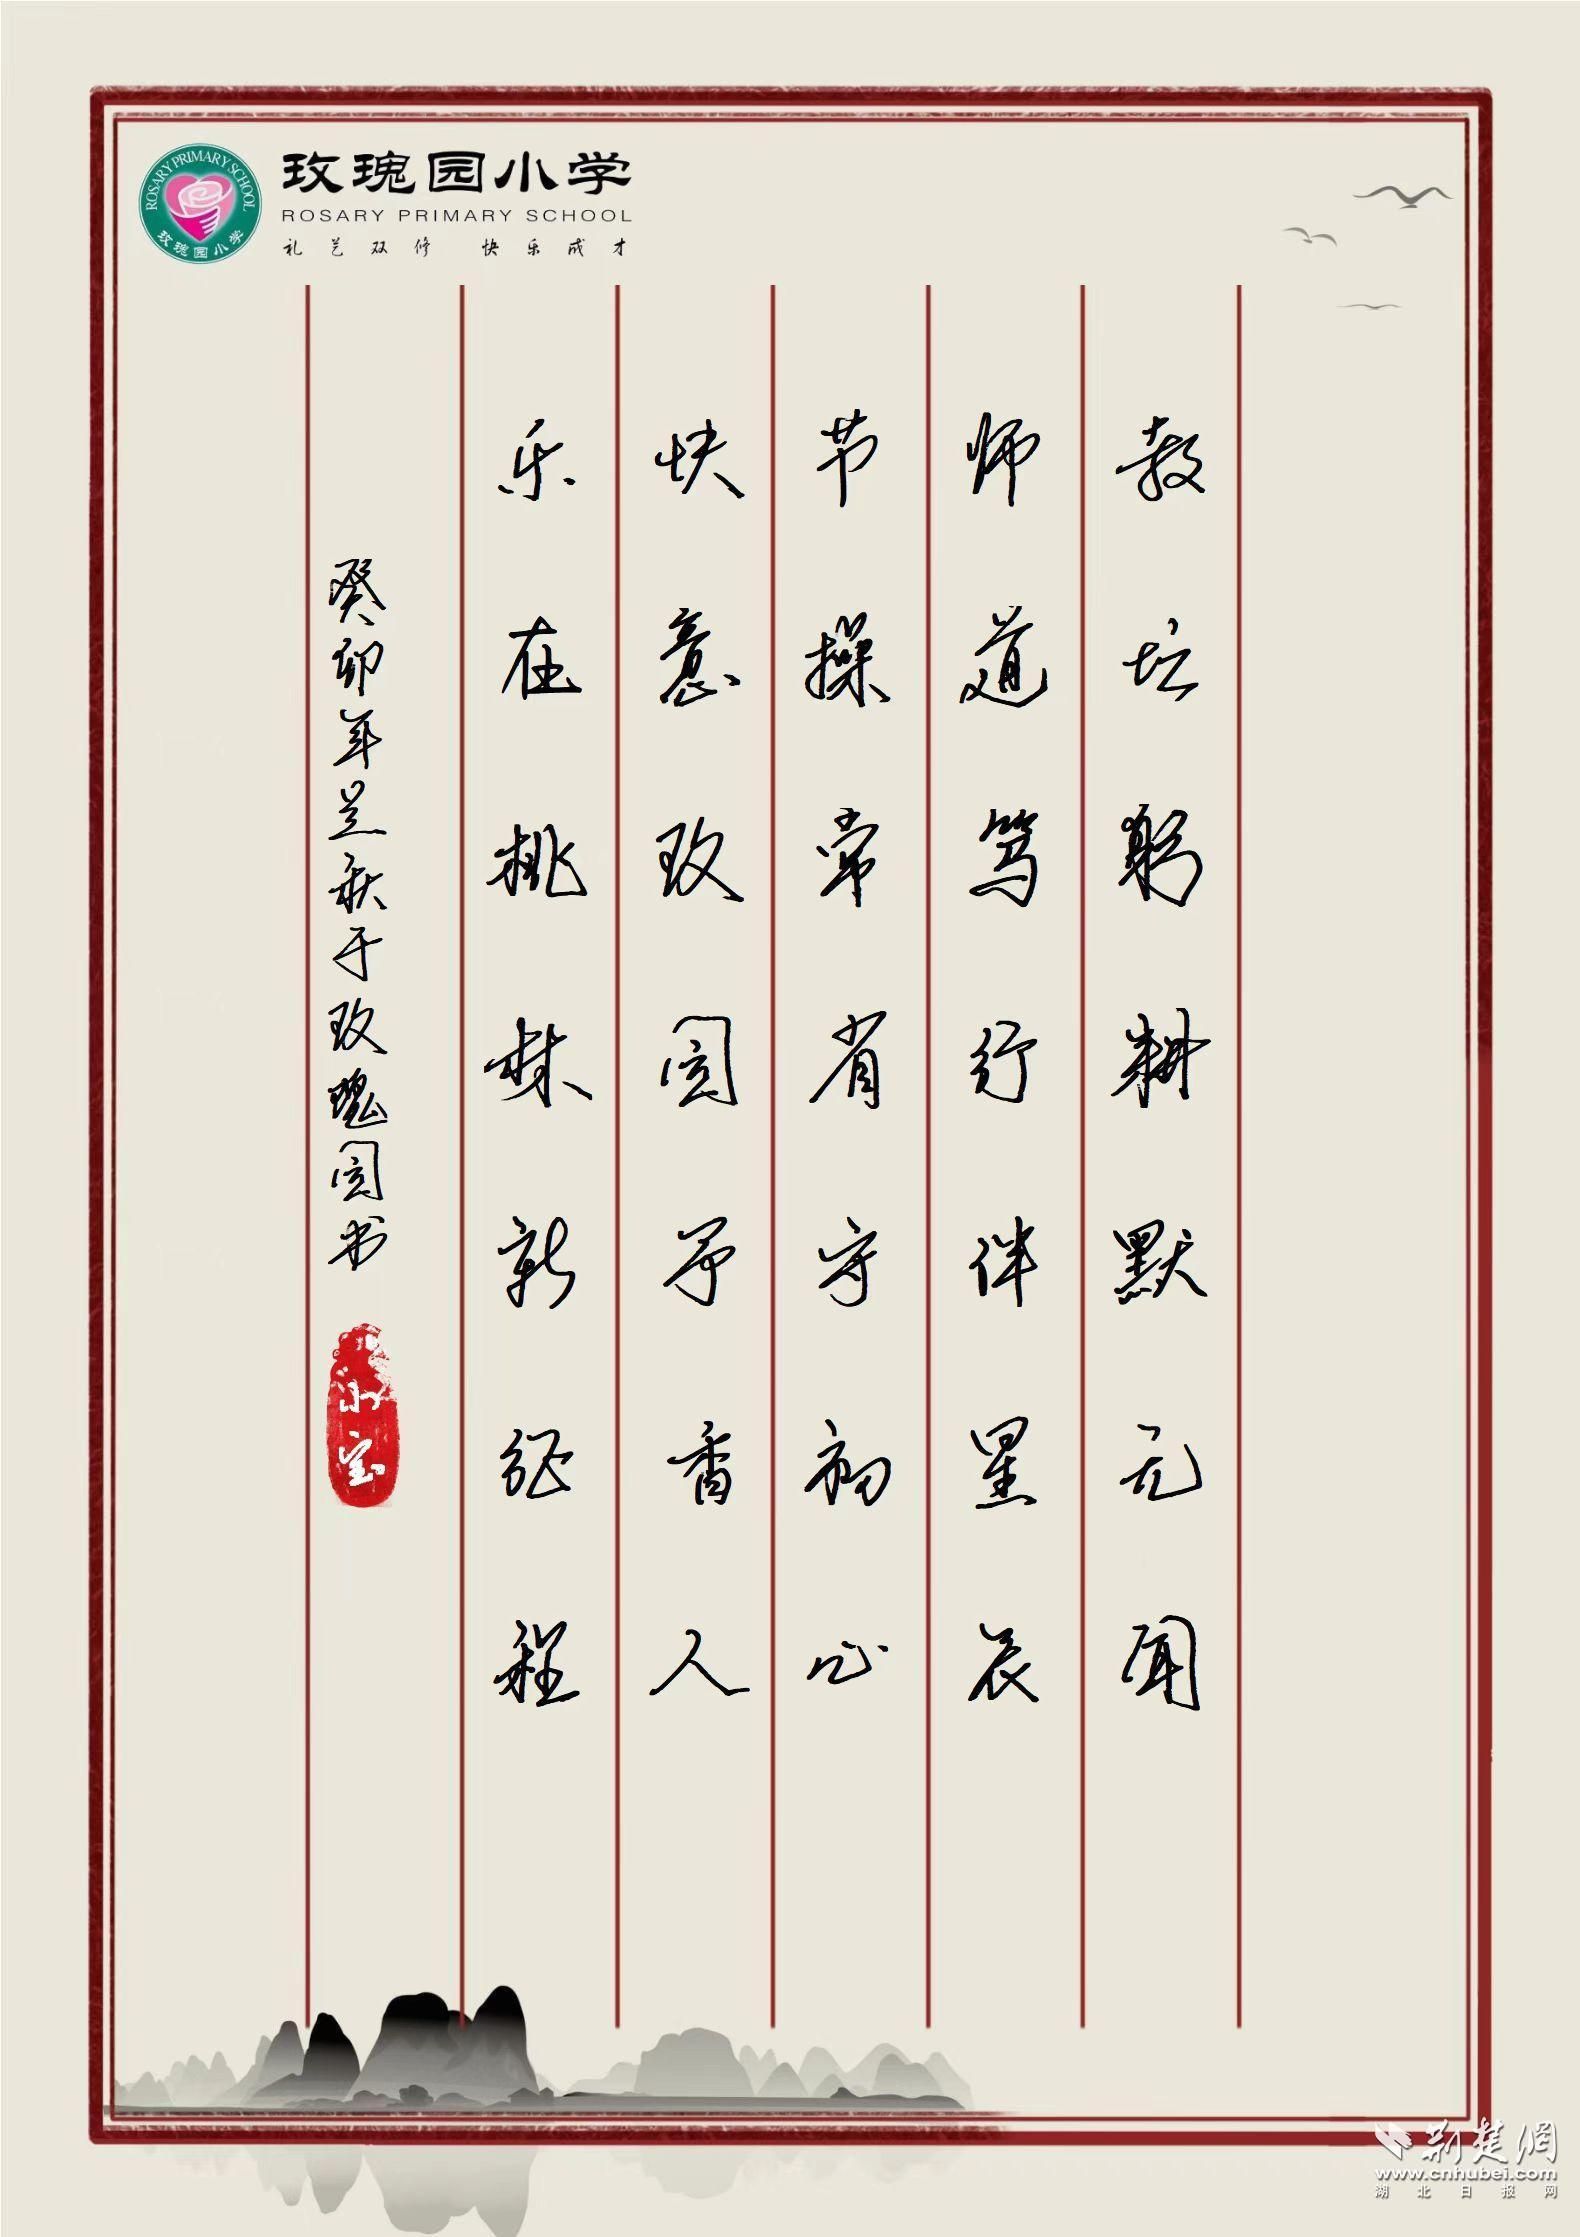 ROSARY PRIMARY SCHOOL
玫瑰园小学
玫瑰园小学
ROSARY PRIMARY SCHOOL
礼艺双修 快乐成才
教坛躬耕默无闻
师道笃行伴星辰
节操常省守初心
快意玫园予香人
乐在桃林新征程
癸卯年兰秋于玫瑰园书
荆楚网
www.cnhubei.com
湖北日报网